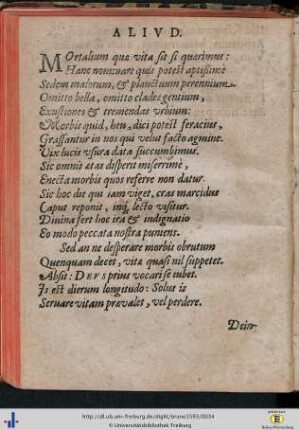 ALIVD.
MOrtalium quæ vita sit si quærimus:
Hanc nominare quis potest aptißimè
Sedem malorum, & planctuum perennium.
Omitto bella, omitto clades gentium,
Exustiones & tremendas vrbium:
Morbis quid, heu, dici potest feracius,
Grassantur in nos qui velut facto agmine.
Vix lucis vsura data succumbimus.
Sic omnis ætas disperit miserrimè,
Enecta morbis quos referre non datur.
Sic hoc die qui iam viget, cras marcidus
Caput reponit, inq; lecto visitur.
Divina fert hoc ira & indignatio
Eo modo peccata nostra puniens.
Sed an ne desperare morbis obrutum
Quenquam decet, vitæ quasi nil suppetet.
Absit: DEVS prius vocari se iubet.
Is est dierum longitudo: Solus is
Servare vitam prævalet, vel perdere.
http://dl.ub.uni-freiburg.de/diglit/brunn1593/0034
© Universitätsbibliothek Freiburg